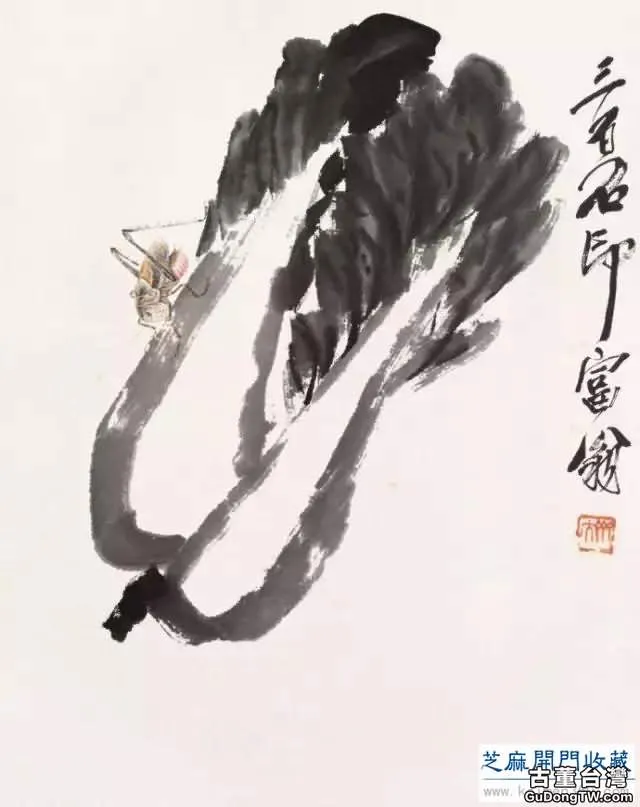 三百石印富翁
芝麻開門收藏
古董台灣
GuDongTW.com